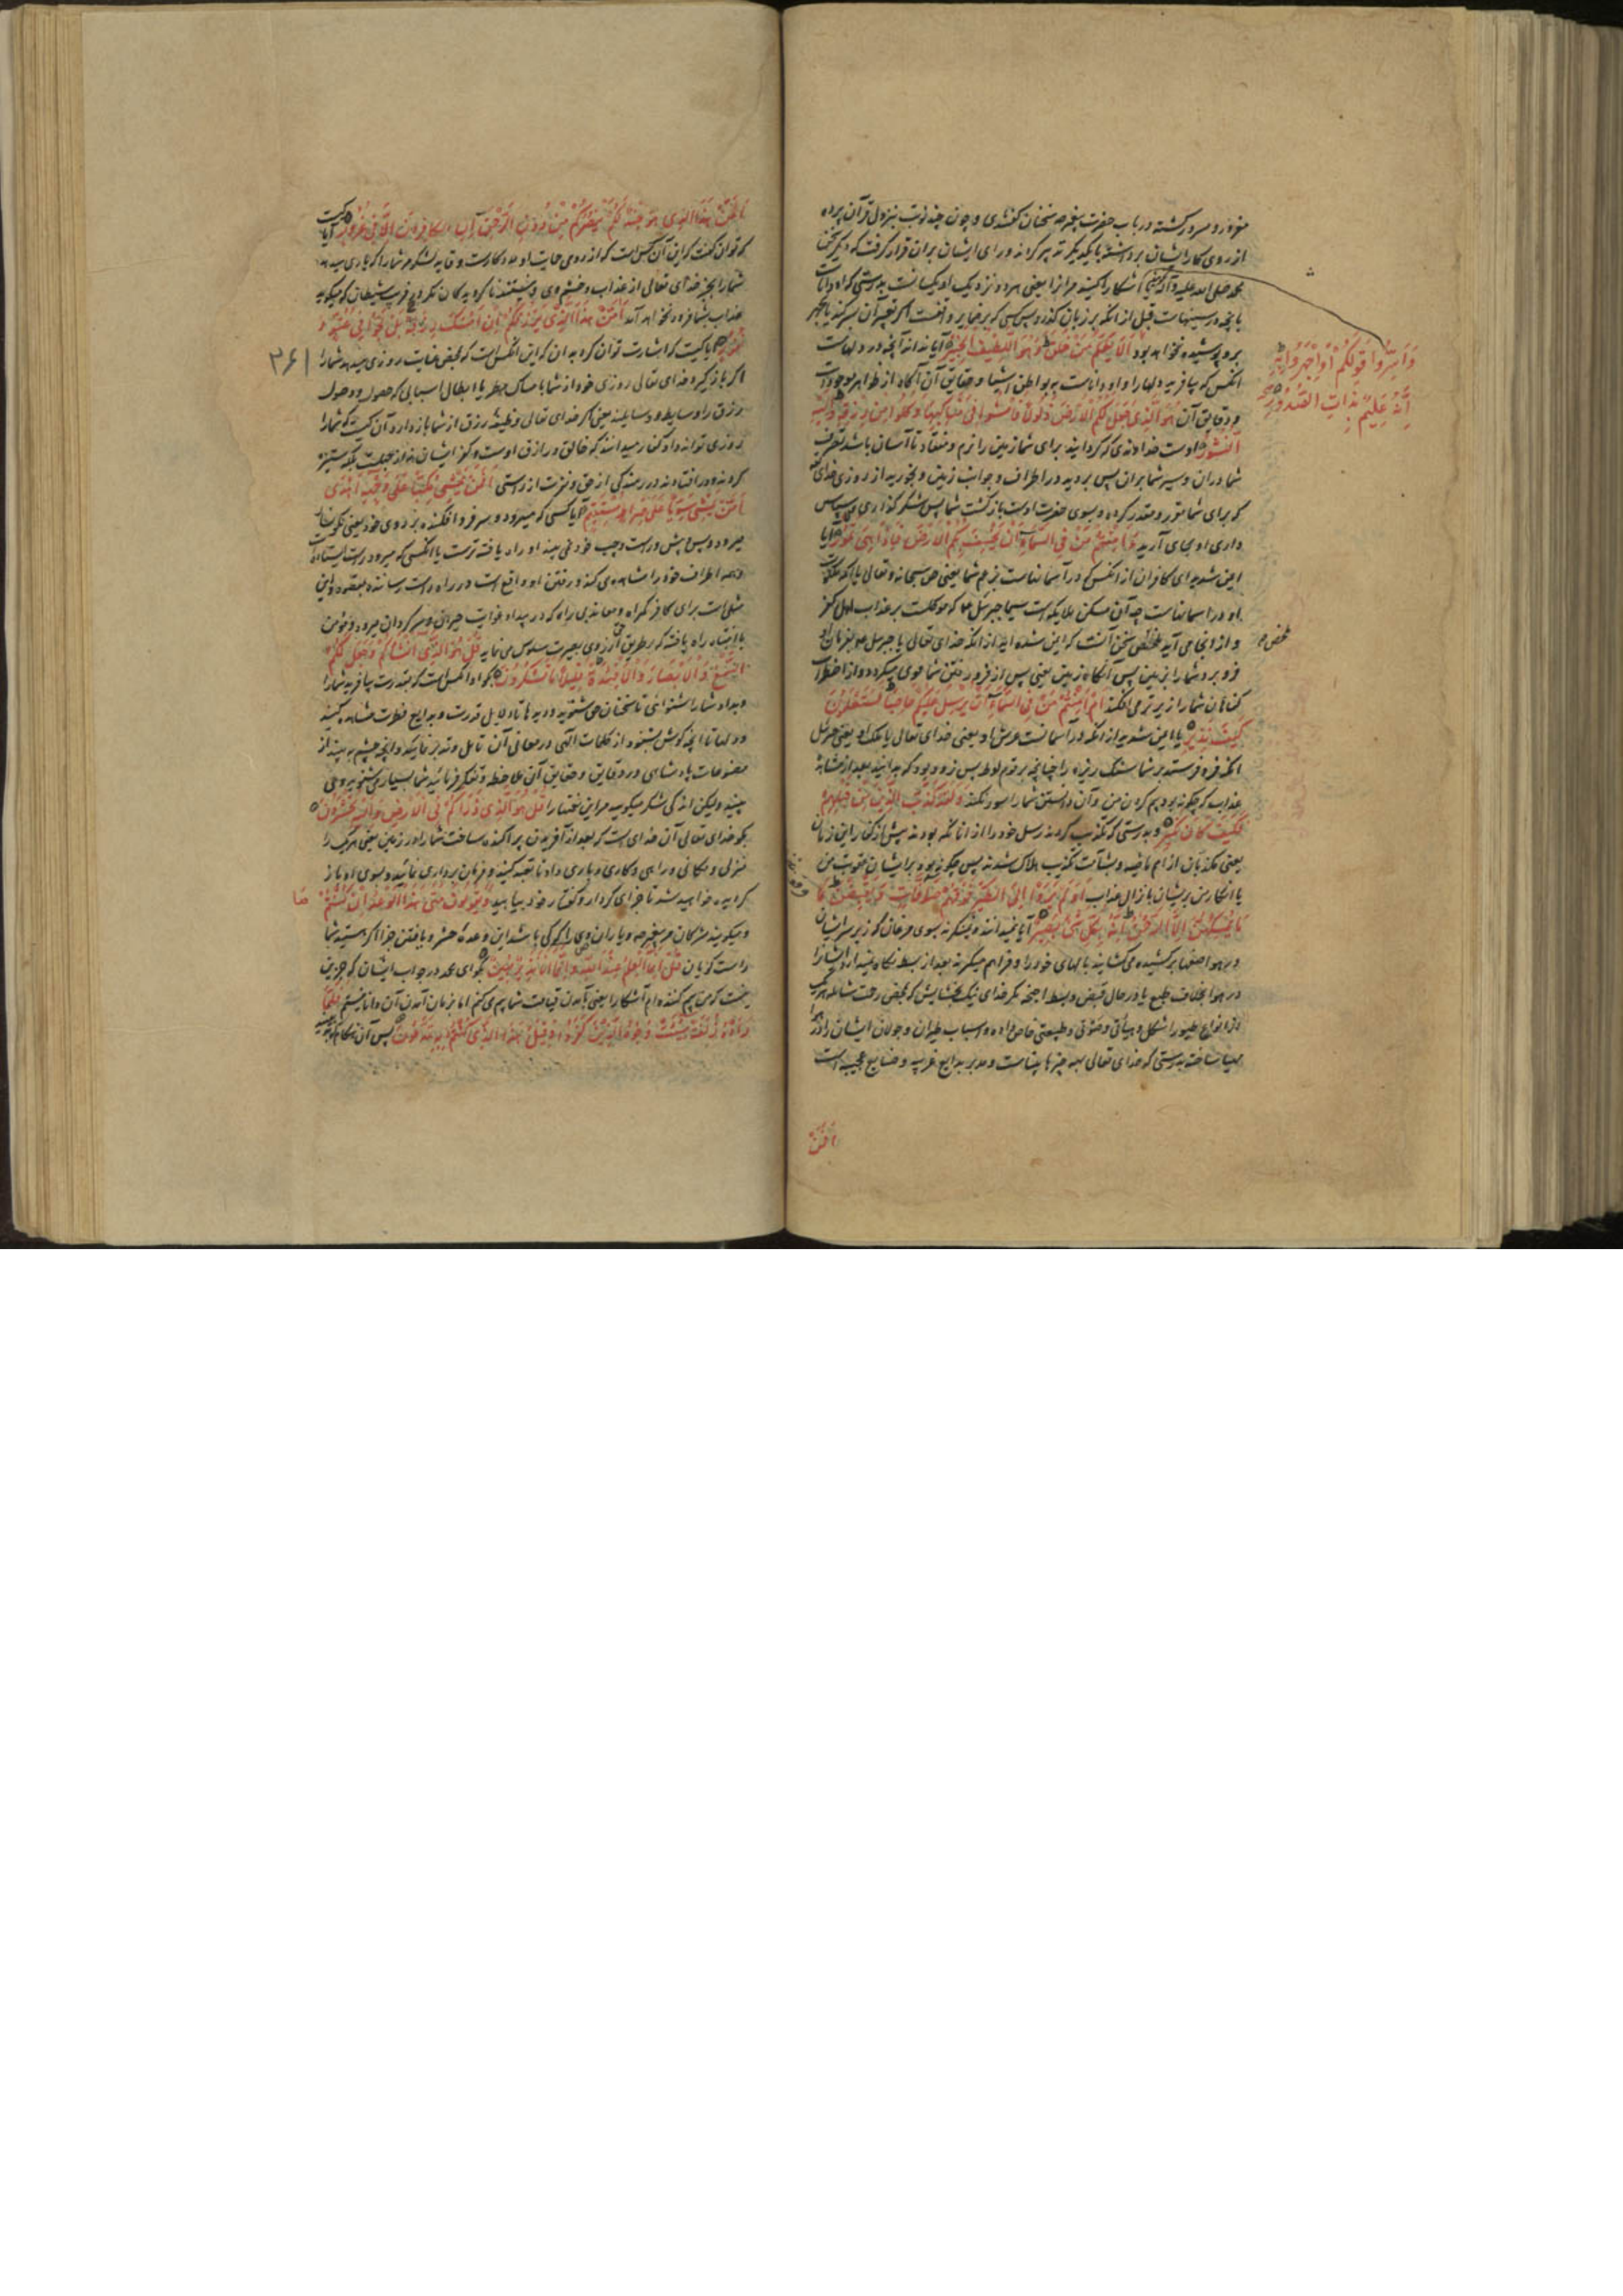 مغرور و مسرور گشته در باب حضرت پیغمبر صم سخنان گفتندی و چون چند نوبت بنزول قرآن پرده
از روی کار ایشان برداشته با یکدیگر
محمد صلی الله علیه وآله آشکارا کنید مر آنرا یعنی هر دو نزدیک او یکسانست بدرستی که او داناست
بانچه در سینهاست قبل از انکه بر زبان گذرد پس کسی که بر ضمایر واقفست اگر تعبیر آن بسر کنند یا بجهر
برو پوشیده نخواهد بود أَلَا يَعْلَمُ مَنْ خَلَقَ وَهُوَ اللَّطِيفُ الْخَبِيرُ آیا نداند آنچه در دلهاست
وَأَسِرُّوا قَوْلَكُمْ أَوِ اجْهَرُوا بِهِ
إِنَّهُ عَلِيمٌ بِذَاتِ الصُّدُورِ
انکس که بیافرید دلها را و او داناست به بواطن اشیا و حقایق آن آگاه از ظواهر موجودات
و دقایق آن هُوَ الَّذِي جَعَلَ لَكُمُ الْأَرْضَ ذَلُولًا فَامْشُوا فِي مَنَاكِبِهَا وَكُلُوا مِنْ رِزْقِهِ وَإِلَيْهِ
النُّشُورُ اوست خداوندی که گردانید برای شما زمین را نرم و منقاد تا آسان باشد تصرف
شما دران و سیر شما بران پس بروید در اطراف و جوانب زمین و بخورید از روزی خدای
که برای شما مقرر و مقدر کرده و بسوی حضرت اوست بازگشت شما پس شکر گذاری و سپاس
داری او بجای آرید ءَأَمِنْتُمْ مَنْ فِي السَّمَاءِ أَنْ يَخْسِفَ بِكُمُ الْأَرْضَ فَإِذَا هِيَ تَمُورُ آیا
ایمن شدید ای کافران از انکس که در آسمانهاست بزعم شما یعنی حق سبحانه و تعالی یا انکه ملکوت
او در آسمانهاست چه آن مسکن ملایکه است سیما جبرئیل که موکلست بر عذاب اهل کفر
ملخص
فرو برد شما را بزمین پس آنگاه زمین یعنی پس از فرو رفتن شما
کنان شما را از زیر ترمی افکند أَمْ أَمِنْتُمْ مَنْ فِي السَّمَاءِ أَنْ يُرْسِلَ عَلَيْكُمْ حَاصِبًا فَسَتَعْلَمُونَ
كَيْفَ نَذِيرِ یا ایمن شدید از انکه در آسمانست عرش او یعنی خدای تعالی یا ملک او یعنی جبرئیل
انکه فرو فرستد بر شما سنگ ریزه را چنانچه بر قوم لوط پس زود بود که بدانید بعد از مشاهده
عذاب که چگونه بود بیم کردن من و آن دانستن شما را سود نکند وَلَقَدْ كَذَّبَ الَّذِينَ مِنْ قَبْلِهِمْ
فَكَيْفَ كَانَ نَكِيرِ و بدرستی که تکذیب کردند رسل خود را از انانکه بودند پیش از کفار این زمان
یعنی مکذبان از امم ماضیه و بشآمت تکذیب هلاک شدند پس چگونه بود بر ایشان عقوبت من
یا انکار من بریشان بانزال عذاب أَوَلَمْ يَرَوْا إِلَى الطَّيْرِ فَوْقَهُمْ صَافَّاتٍ وَيَقْبِضْنَ مَا
يُمْسِكُهُنَّ إِلَّا الرَّحْمَنُ إِنَّهُ بِكُلِّ شَيْءٍ بَصِيرٌ آیا نمیدانند و نمینگرند بسوی مرغان که زبر سر ایشان
در هوا صفها برکشیده می گشایند بالهای خود را و فراهم میگیرند بعد از بسط نگاه نمیدارد ایشانرا
در هوا بخلاف طبع یا در حال قبض و بسط اجنحه مگر خدای نیک بخشایش که بمحض رحمت شامله هر یک
از انواع طیور را شکل و هیأتی و طبیعتی خاص داده و اسباب طیران و جولان ایشان را در هوا
مهیا ساخته بدرستی که خدای تعالی بهمه چیزها بیناست و مدبر بدایع غریبه و صنایع عجیبه است
أَمَّنْ
أَمَّنْ هَذَا الَّذِي هُوَ جُنْدٌ لَكُمْ يَنْصُرُكُمْ مِنْ دُونِ الرَّحْمَنِ إِنِ الْكَافِرُونَ إِلَّا فِي غُرُورٍ آیا کیست
که توان گفت که این آن کس است که از روی حمایت او مددکارست و قایم لشکر مر شما را که یاری میدهد
شما را بجز خدای تعالی از عذاب و خشم وی نیستند ناگرویدگان مگر در فریب شیطان که میگوید
عذاب بشما فرود نخواهد آمد أَمَّنْ هَذَا الَّذِي يَرْزُقُكُمْ إِنْ أَمْسَكَ رِزْقَهُ بَلْ لَجُّوا فِي عُتُوٍّ وَ
نُفُورٍ آیا کیست که اشارت توان کرد بدان که این انکس است که بمحض عنایت روزی میدهد شما را
۳۶۱
اگر باز گیرد خدای تعالی روزی خود از شما بامساک مطر یا ابطال اسبابی که حصول و وصول
رزق را وسایط و وسایلند یعنی اگر خدای تعالی وظیفه رزق از شما باز دارد آن کیست که شما را
روزی تواند داد کفار میدانند که خالق و رازق اوست و کفر ایشان نه از جهلست بلکه ستیزه
کردند و در افتادند در رمندگی از حق و نفرت از راستی أَفَمَنْ يَمْشِي مُكِبًّا عَلَى وَجْهِهِ أَهْدَى
أَمَّنْ يَمْشِي سَوِيًّا عَلَى صِرَاطٍ مُسْتَقِيمٍ آیا کسی که میرود و سر فرو افکنده بر روی خود یعنی نگونسار
میرود و پس و پیش و راست و چپ خود نمی بیند او راه یافته ترست یا انکسی که میرود راست ایستاده
و همه اطراف خود را مشاهده می کند و رفتن او واقع است در راه راست رساننده بمقصد و این
مثلیست برای کافر گمراه و معاندی راه که در بیداء غوایت حیران و سرگردان میرود و مؤمن
باانقیاد راه یافته که بر طریق حق از روی بصیرت سلوک می نماید قُلْ هُوَ الَّذِي أَنْشَأَكُمْ وَجَعَلَ لَكُمُ
السَّمْعَ وَالْأَبْصَارَ وَالْأَفْئِدَةَ قَلِيلًا مَا تَشْكُرُونَ بگو او انکس است که بقدرت بیافرید شما را
و بداد شما را شنوایی تا سخنان حق شنوید و دیدها تا دلایل قدرت و بدایع فطرت مشاهده کنید
و دلها تا انچه گوش بشنود از کلمات الهی در معانی آن تامل و تدبر نماید و انچه چشم به بیند از
مصنوعات پادشاهی در دقایق و حقایق آن ملاحظه و تفکر فرمائید شما بسیار می شنوید و می
بینید ولیکن اندکی شکر میگویید مر این نعمتها را قُلْ هُوَ الَّذِي ذَرَأَكُمْ فِي الْأَرْضِ وَإِلَيْهِ تُحْشَرُونَ
بگو خدای تعالی آن خدای است که بعد از آفریدن پراکنده ساخت شما را در زمین یعنی هر یک را
منزلی و مکانی و راهی و کاری و باری داد تا تعبد کنید و فرمان برداری نمائید و بسوی او باز
گردیده خواهید شد تا جزای کردار و گفتار خود بیابید وَيَقُولُونَ مَتَى هَذَا الْوَعْدُ إِنْ كُنْتُمْ صَا
و میگویند مشرکان مر پیغمبر صم و یاران وی را که کی باشد این وعدهٔ حشر و یافتن جزا اگر هستید شما
راست گویان قُلْ إِنَّمَا الْعِلْمُ عِنْدَ اللَّهِ وَإِنَّمَا أَنَا نَذِيرٌ مُبِينٌ بگو ای محمد در جواب ایشان که جز این
نیست که من بیم کننده ام آشکارا یعنی بآمدن قیامت شما را بیم می کنم اما بزمان آمدن آن دانا نیستم فَلَمَّا
رَأَوْهُ زُلْفَةً سِيئَتْ وُجُوهُ الَّذِينَ كَفَرُوا وَقِيلَ هَذَا الَّذِي كُنْتُمْ بِهِ تَدَّعُونَ پس آن هنگام که به بینند